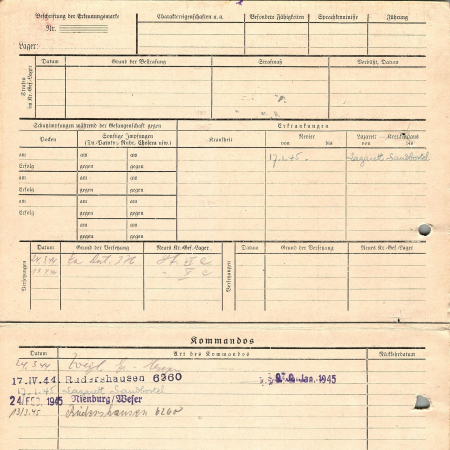 Beschriftung der Erkennungsmarke
Nr.
Lager:
Charaktereigenschaften u. a.
Besondere Fähigkeiten
Sprachkenntnisse
Führung
Strafen im Kr.-Gef.-Lager
Datum
Grund der Bestrafung
Strafmaß
Verbüßt, Datum
Schutzimpfungen während der Gefangenschaft gegen
Erkrankungen
Pocken
Sonstige Impfungen
(Ty.-Paraty., Ruhr, Cholera usw.)
Krankheit
Revier
von bis
Lazarett — Krankenhaus
von bis
am am am
Erfolg gegen gegen
am am am
Erfolg gegen gegen
am am am
Erfolg gegen gegen
am am
gegen gegen
17.1.45. Lazarett Sandbostel
Versetzungen
Datum
Grund der Versetzung
Neues Kr.-Gef.-Lager
Versetzungen
Datum
Grund der Versetzung
Neues Kr.-Gef.-Lager
24.3.44
X C
Kommandos
Datum
Art des Kommandos
Rückkehrdatum
24.3.44
17. IV. 44. Rüdershausen 6260
Jan. 1945
17.1.45. Lazarett Sandbostel
24. FEB. 1945 Nienburg/Weser
13/3.45 Rüdershausen 6260